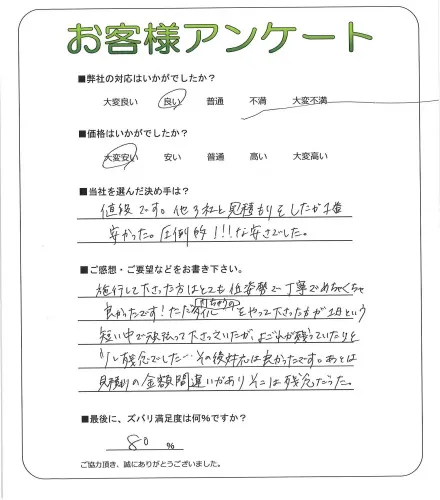 お客様アンケート
■弊社の対応はいかがでしたか?
大変良い 良い 普通 不満 大変不満
■価格はいかがでしたか?
大変安い 安い 普通 高い 大変高い
■当社を選んだ決め手は?
値段です。他3社と見積もりをしたが1番
安かった。圧倒的!!!な安さでした。
■ご感想・ご要望などをお書き下さい。
施行して下さった方はとても低姿勢で丁寧でめちゃくちゃ
良かったです!ただ をやって下さった方が1日という
短い中で頑張って下さっていたが、よごれが残っていたりと
少し残念でした…その後対応は良かったです。あとは
見積りの金額間違いがありそこは残念だった。
■最後に、ズバリ満足度は何%ですか?
80 %
ご協力頂き、誠にありがとうございました。